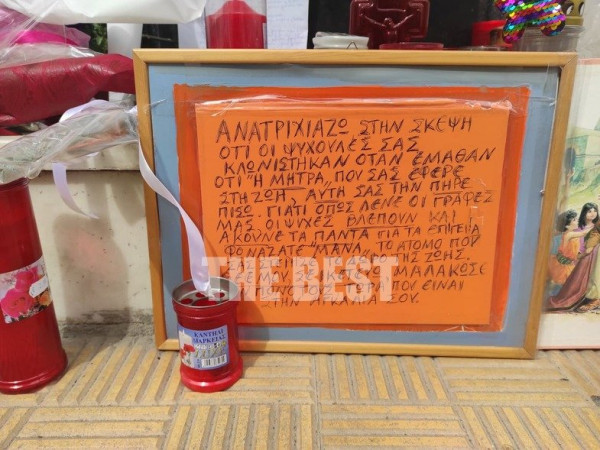 ΑΝΑΤΡΙΧΙΑΖΩ ΣΤΗΝ ΣΚΕΨΗ
ΟΤΙ ΟΙ ΨΥΧΟΥΛΕΣ ΣΑΣ
ΚΛΩΝΙΣΤΗΚΑΝ ΟΤΑΝ ΕΜΑΘΑΝ
ΟΤΙ "Η ΜΗΤΡΑ, ΠΟΥ ΣΑΣ ΕΦΕΡΕ
ΣΤΗ ΖΩΗ, ΑΥΤΗ ΣΑΣ ΤΗΝ ΠΗΡΕ
ΠΙΣΩ. ΓΙΑΤΙ ΟΠΩΣ ΛΕΝΕ ΟΙ ΓΡΑΦΕΣ
ΜΑΣ ΟΙ ΨΥΧΕΣ ΒΛΕΠΟΥΝ ΚΑΙ
ΑΚΟΥΝΕ ΤΑ ΠΑΝΤΑ ΓΙΑ ΤΑ ΕΠΙΓΕΙΑ
ΦΩΝΑΖΑΤΕ "ΜΑΜΑ" ΤΟ ΑΤΟΜΟ ΠΟΥ
ΤΗΣ ΖΩΗΣ.
ΜΑΛΑΚΩΣΕ
ΠΟΥ ΕΙΝΑΙ
ΣΤΗΝ ΑΓΚΑΛΙΑ ΣΟΥ.
THE BEST
ΚΑΝΤΗΛΙ
ΔΙΑΡΚΕΙΑΣ